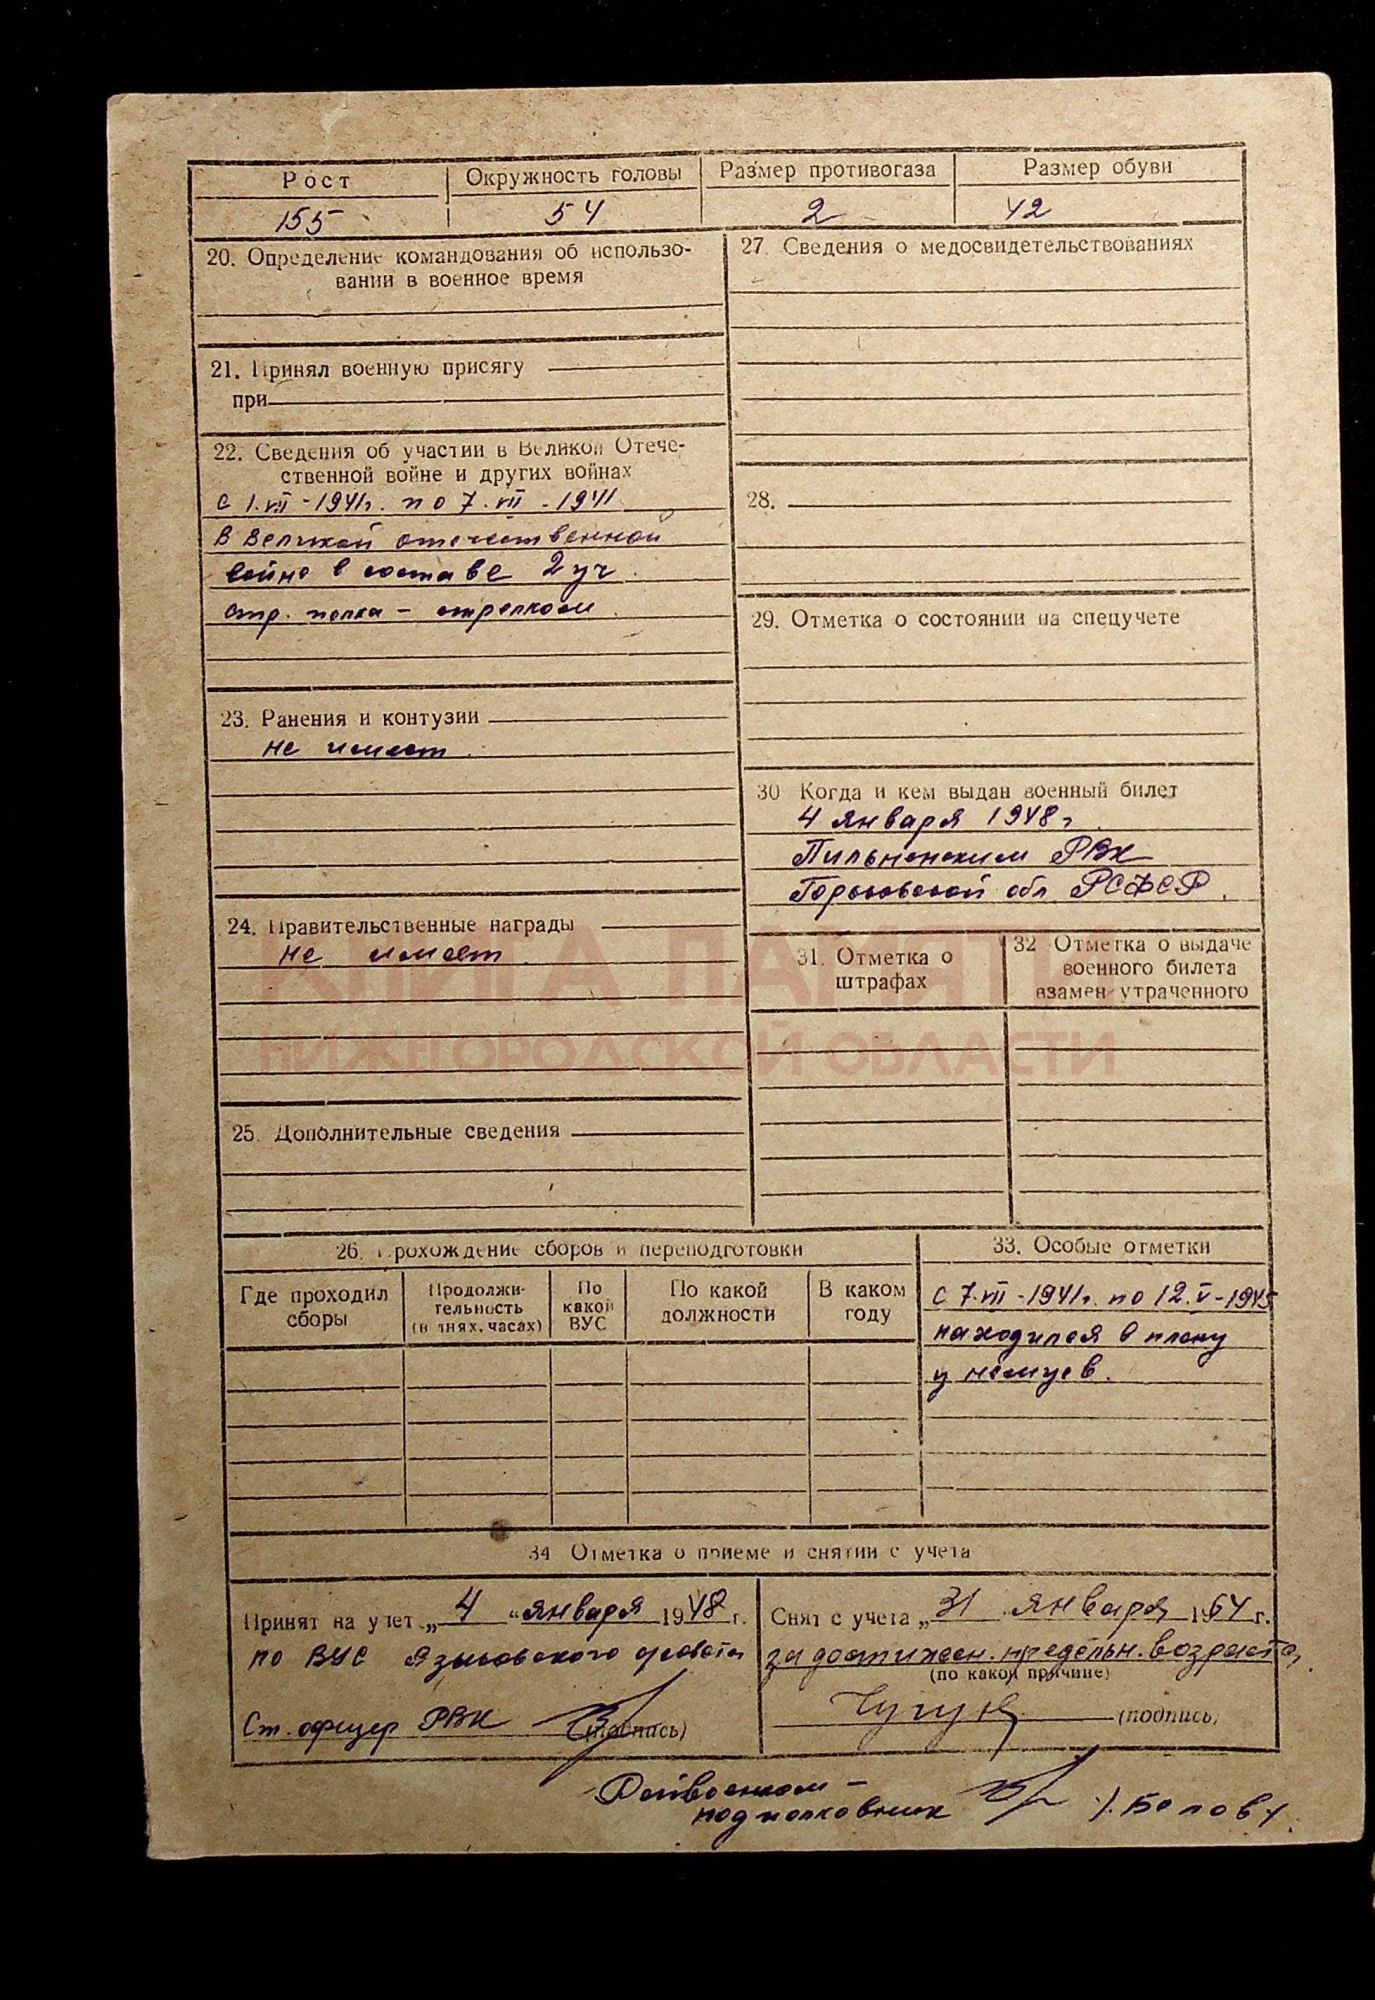 Рост
Окружность головы
Размер противогаза
Размер обуви
155
54
2
42
20. Определение командования об использо-
вании в военное время
21. Принял военную присягу
при
22. Сведения об участии в Великой Отече-
ственной войне и других войнах
с 1.VII-1941г. по 7.VII-1941
в Великой отечественной
войне в составе 2 уч
стр. полка - стрелком.
23. Ранения и контузии
не имеет.
24. Правительственные награды
не имеет.
25. Дополнительные сведения
27. Сведения о медосвидетельствованиях
28.
29. Отметка о состоянии на спецучете
30 Когда и кем выдан военный билет
4 января 1948г.
Пильненским РВК
Горьковской обл. РСФСР.
31. Отметка о
штрафах
32 Отметка о выдаче
военного билета
взамен утраченного
КНИГА ПАМЯТИ
НИЖЕГОРОДСКОЙ ОБЛАСТИ
26. Прохождение сборов и переподготовки
Где проходил
сборы
Продолжи-
тельность
(в днях, часах)
По
какой
ВУС
По какой
должности
В каком
году
33. Особые отметки
с 7.VII-1941г. по 12.V-1945
находился в плену
у немцев.
34 Отметка о приеме и снятии с учета
Принят на учет „4" января 1948г.
по ВУС Языковского с/совета
Ст. офицер РВК (подпись)
Снят с учета „31 января 1964г.
за достижен. предельн. возраста,
(по какой причине)
(подпись)
Райвоенком -
подполковник /. Белов /.